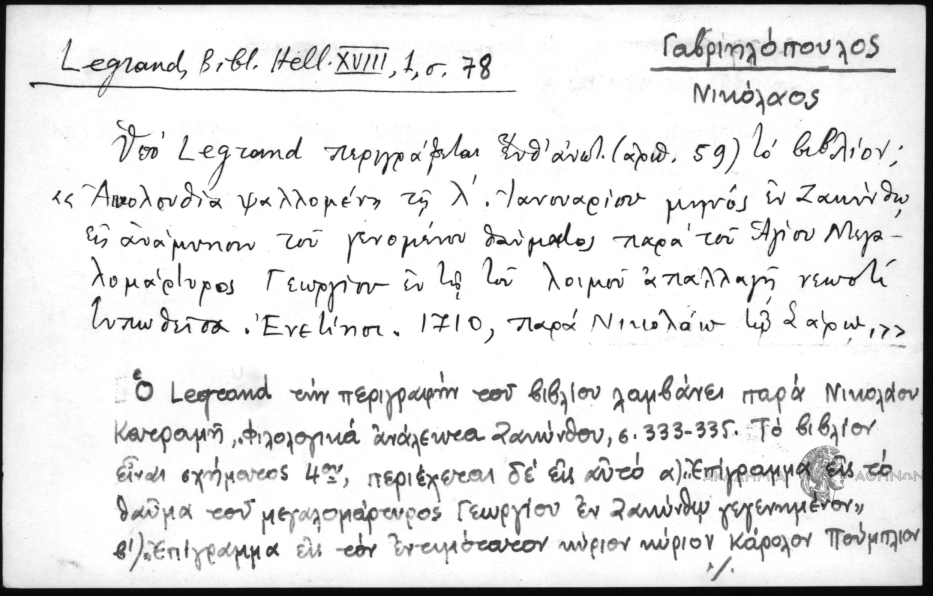 Legrand, Bibl. Hell. XVIII, 1, σ. 78
Γαβριηλόπουλος
Νικόλαος
Ὑπό Legrand περιγράφεται ἐνθ' ἀνωτ. (ἀριθ. 59) τό βιβλίον;
«Ἀκολουθία ψαλλομένη τῇ λ'. Ἰανουαρίου μηνός ἐν Ζακύνθῳ,
εἰς ἀνάμνησιν τοῦ γενομένου θαύματος παρά τοῦ Ἁγίου Μεγα-
λομάρτυρος Γεωργίου ἐν τῇ τοῦ λοιμοῦ ἀπαλλαγῇ νεωστί
τυπωθεῖσα. Ἐνετίησι. 1710, παρά Νικολάῳ τῷ Σάρῳ,»
Ὁ Legrand τήν περιγραφήν τοῦ βιβλίου λαμβάνει παρά Νικολάου
Κατραμῆ, "Φιλολογικά ἀνάλεκτα Ζακύνθου, σ. 333-335. Τό βιβλίον
εἶναι σχήματος 4ου, περιέχεται δέ εἰς αὐτό α) "Ἐπίγραμμα εἰς τό
θαῦμα τοῦ μεγαλομάρτυρος Γεωργίου ἐν Ζακύνθῳ γεγενημένον»
β') "Ἐπίγραμμα εἰς τόν ἐντιμότατον κύριον κύριον Κάρολον Πούμπλιον
./.
ΑΚΑΔΗΜΙΑ ΑΘΗΝΩΝ